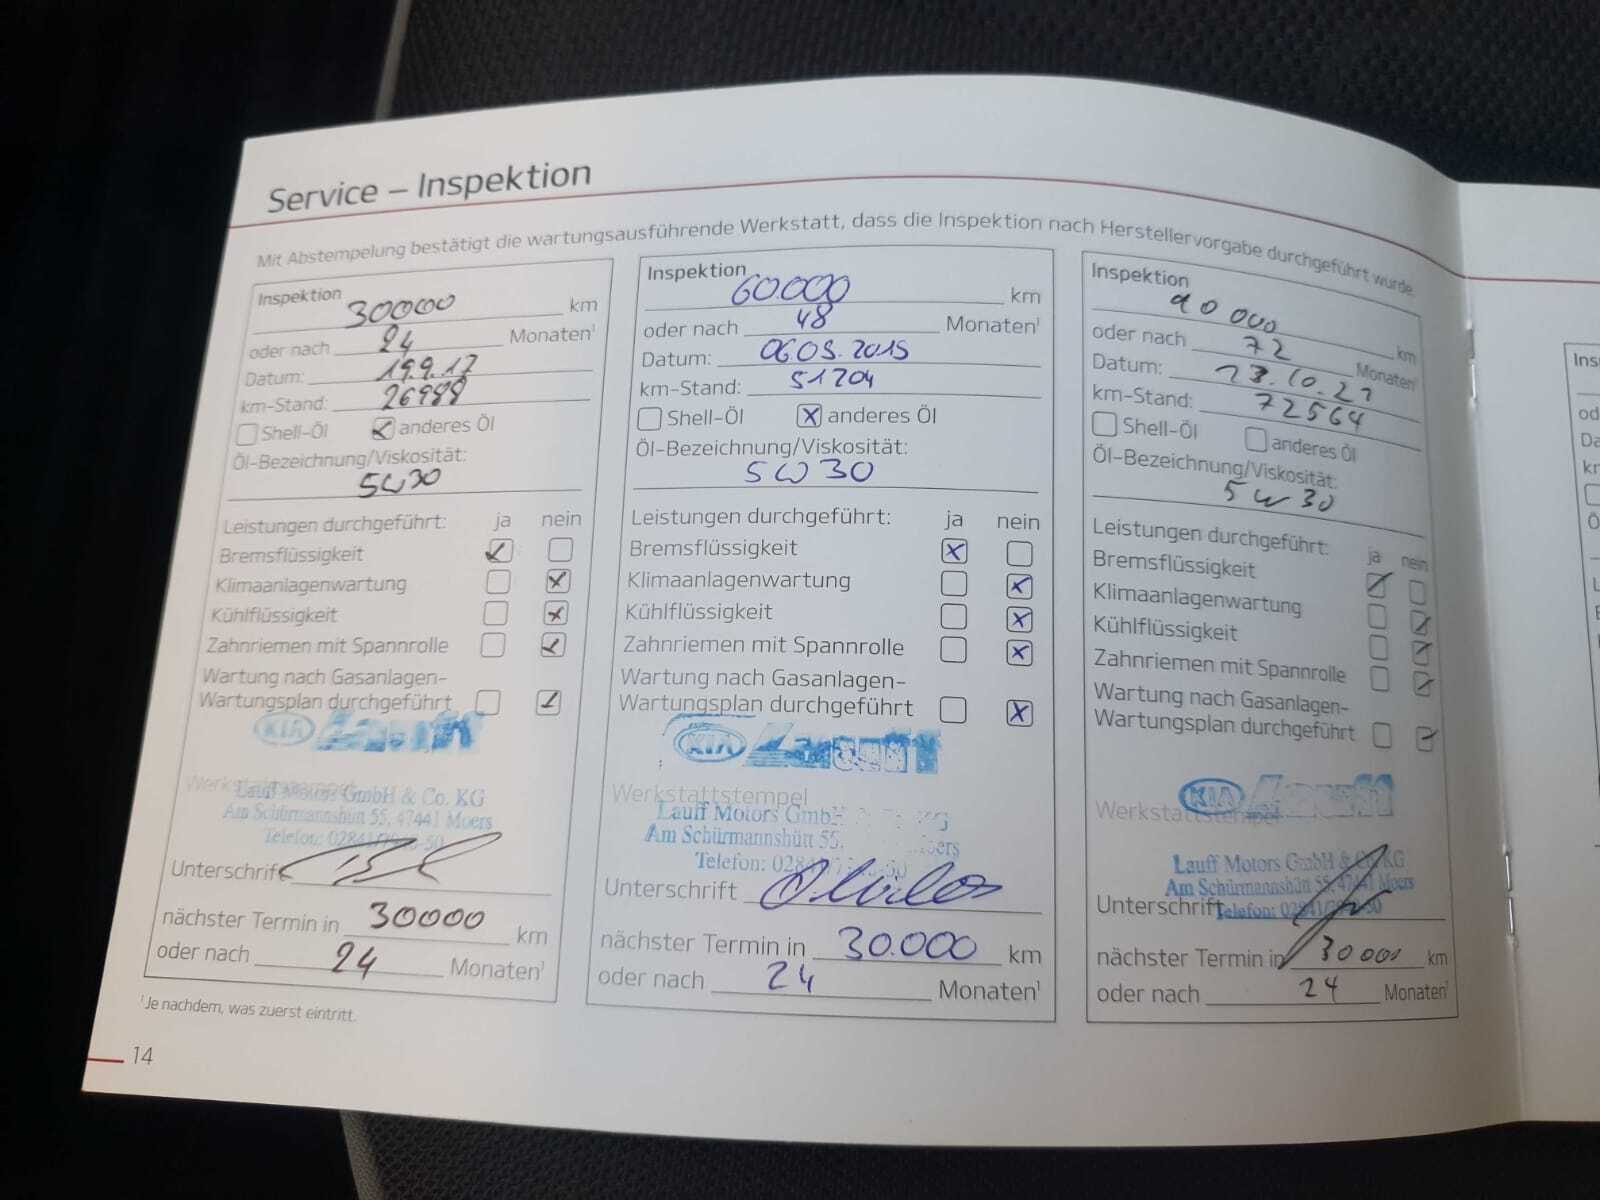 Service – Inspektion
Mit Abstempelung bestätigt die wartungsausführende Werkstatt, dass die Inspektion nach Herstellervorgabe durchgeführt wurde.
Inspektion 30000 km
oder nach 24 Monaten¹
Datum: 19.9.17
km-Stand: 26988
Shell-Öl anderes Öl
Öl-Bezeichnung/Viskosität:
5W30
Leistungen durchgeführt: ja nein
Bremsflüssigkeit
Klimaanlagenwartung
Kühlflüssigkeit
Zahnriemen mit Spannrolle
Wartung nach Gasanlagen-
Wartungsplan durchgeführt
KIA Lauff
Werkstattstempel
Lauff Motors GmbH & Co. KG
Am Schürmannshütt 55, 47441 Moers
Telefon: 02841/
Unterschrift
nächster Termin in 30000 km
oder nach 24 Monaten¹
Inspektion 60.000 km
oder nach 48 Monaten¹
Datum: 06.09.2019
km-Stand: 51204
Shell-Öl anderes Öl
Öl-Bezeichnung/Viskosität:
5W30
Leistungen durchgeführt: ja nein
Bremsflüssigkeit
Klimaanlagenwartung
Kühlflüssigkeit
Zahnriemen mit Spannrolle
Wartung nach Gasanlagen-
Wartungsplan durchgeführt
KIA Lauff
Werkstattstempel
Lauff Motors GmbH KG
Am Schürmannshütt 55,
Telefon:
Unterschrift
nächster Termin in 30.000 km
oder nach 24 Monaten¹
Inspektion 90 000 km
oder nach 72 Monaten¹
Datum: 13.10.21
km-Stand: 72564
Shell-Öl anderes Öl
Öl-Bezeichnung/Viskosität:
5W30
Leistungen durchgeführt: ja nein
Bremsflüssigkeit
Klimaanlagenwartung
Kühlflüssigkeit
Zahnriemen mit Spannrolle
Wartung nach Gasanlagen-
Wartungsplan durchgeführt
KIA Lauff
Werkstattstempel
Lauff Motors GmbH & Co. KG
Am Schürmannshütt 55, 47441 Moers
Unterschrift Telefon:
nächster Termin in 30000 km
oder nach 24 Monaten¹
¹Je nachdem, was zuerst eintritt.
14